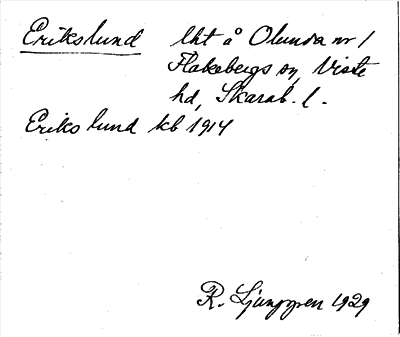 Erikslund lht å Olunda nr 1
Flakebergs sn, Viste
hd, Skarab. l.
Eriks lund kb 1914
R. Ljunggren 1929